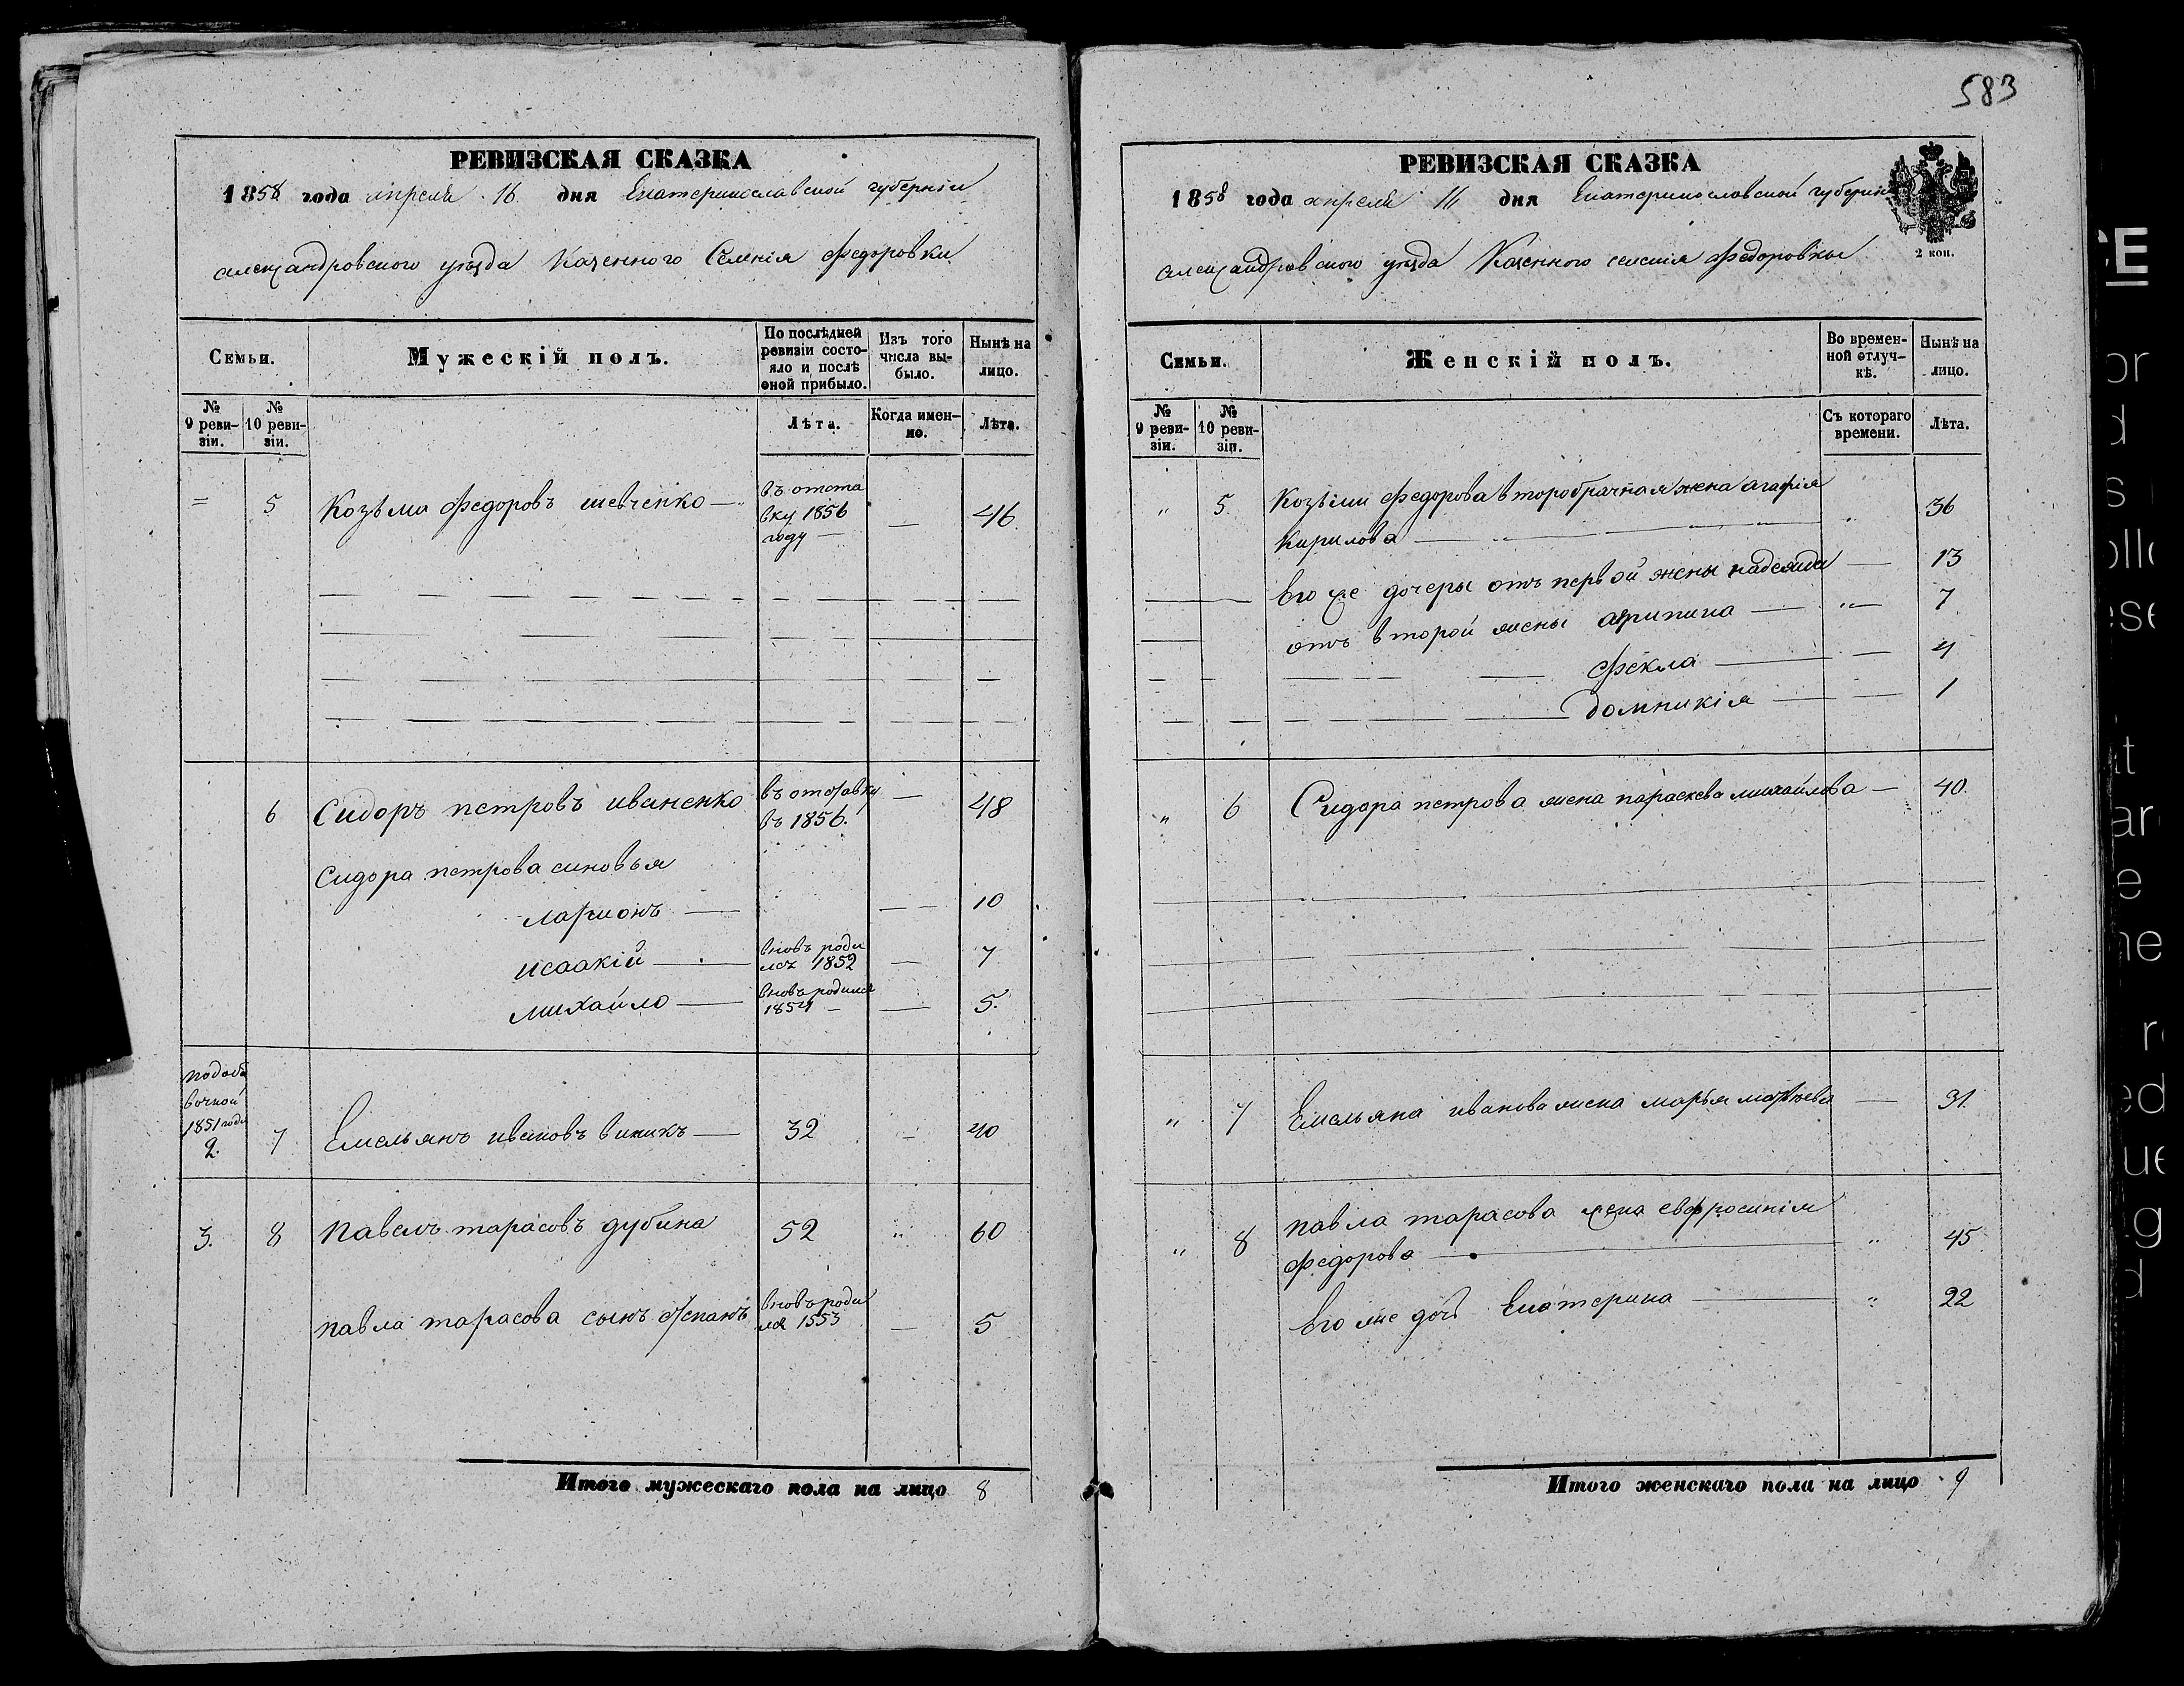 583
РЕВИЗСКАЯ СКАЗКА
1858 года апреля 16 дня Екатеринославской губерніи
александровского уезда Казенного Селенія Федоровки
Семьи.
Мужескій полъ.
По послѣдней ревизіи состо-
яло и послѣ
оной прибыло.
Изъ того
числа вы-
было.
Нынѣ на
лицо.
№
9 реви-
зіи.
№
10 реви-
зіи.
Лѣта.
Когда имен-
но.
Лѣта.
5 Козьма Федоровъ шевченко въ отста
вку 1856
году 46
6 Сидоръ петровъ иваненко въ отставку
въ 1856. 48
Сидора петрова синовья
ларионъ 10
исаакій вновь роди
лсъ 1852 7
михайло вновь родился
1854 5.
1851 года
2. 7 Емельянъ ивановъ виникъ 32 40
3. 8 павелъ тарасовъ дубина 52 60
павла тарасова сынъ вновь роди
лся 1553 5
Итого мужескаго пола на лицо 8
РЕВИЗСКАЯ СКАЗКА
1858 года апреля 16 дня Екатеринославской губерніи
2 коп.
александровского уезда Казенного селенія Федоровки
Семьи.
Женскій полъ.
Во времен-
ной отлуч-
кѣ.
Нынѣ на
лицо.
№
9 реви-
зіи.
№
10 реви-
зіи.
Съ котораго
времени.
Лѣта.
5 Козьми Федорова второбрачная жена агафія
Кирилова 36
Его же дочеры отъ первой жены надежда 13
отъ второй жены агрипина 7
Фекла 4
Домникія 1
6 Сидора петрова жена параскева михайлова 40.
7 Емельяна иванова жена марья 31
8 павла тарасова жена евфросинія
Федорова 45
Его же дочь Екатерина 22
Итого женскаго пола на лицо 9